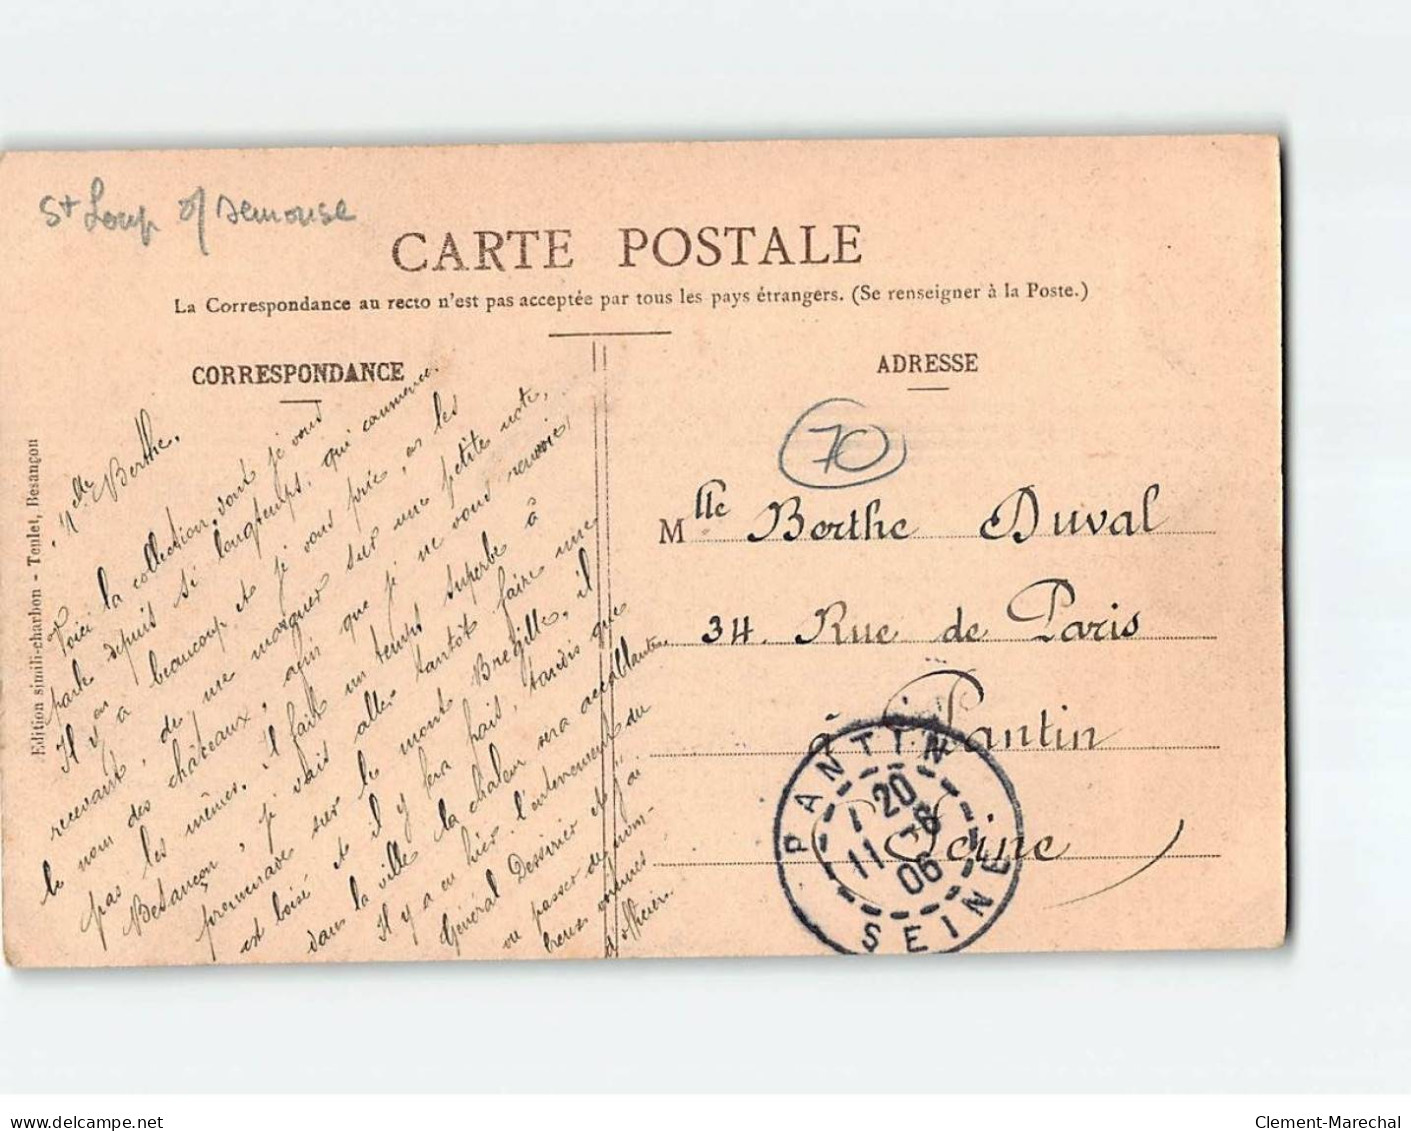 St Loup s/ Semouse
CARTE POSTALE
La Correspondance au recto n'est pas acceptée par tous les pays étrangers. (Se renseigner à la Poste.)
CORRESPONDANCE
ADRESSE
Edition simili-charbon - Teulet, Besançon
Melle Berthe,
Voici la collection, dont je vous
parle depuis si longtemps, qui commence.
Il y en a beaucoup et je vous prie, en les
recevant, de me marquer sur une petite note,
le nom des châteaux, afin que je ne vous renvoie
pas les mêmes. Il fait un temps superbe à
Besançon, je vais aller tantôt faire une
promenade sur le mont Bregille, il
est boisé et il y fera frais, tandis que
dans la ville la chaleur sera accablante.
Il y a eu hier l'enterrement du
Général Dessirier et j'ai
vu passer de nom-
breux
d'officier.
70
Mlle Berthe Duval
34. Rue de Paris
à Pantin
Seine
PANTIN
20
11 -8
06
SEINE
www.delcampe.net
Clement-Marechal